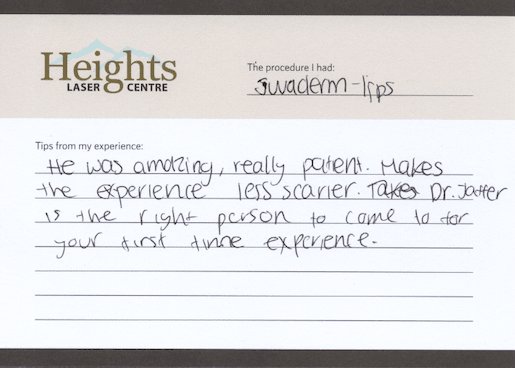 Heights
LASER CENTRE
The procedure I had:
Juvaderm-lips
Tips from my experience:
He was amazing, really patient. Makes
the experience less scarier. Dr. Jaffer
is the right person to come to for
your first time experience.